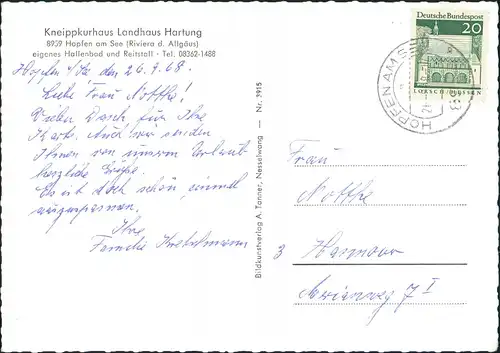 Kneippkurhaus Landhaus Hartung
8959 Hopfen am See (Riviera d. Allgäus)
eigenes Hallenbad und Reitstall - Tel. 08362-1488
Hopfen / See den 26.9.68.
Liebe Frau Nothke!
Vielen Dank für Ihre
Karte. Auch wir senden
Ihnen von unserem Urlaub
herzliche Grüße.
Es ist doch schön, einmal
auszuspannen.
Ihre
Familie
Bildkunstverlag A. Tanner, Nesselwang — Nr. 7915
Deutsche Bundespost
20
LORSCH/HESSEN
HOPFEN AM SEE
Frau
Nothke
3 Hannover
I